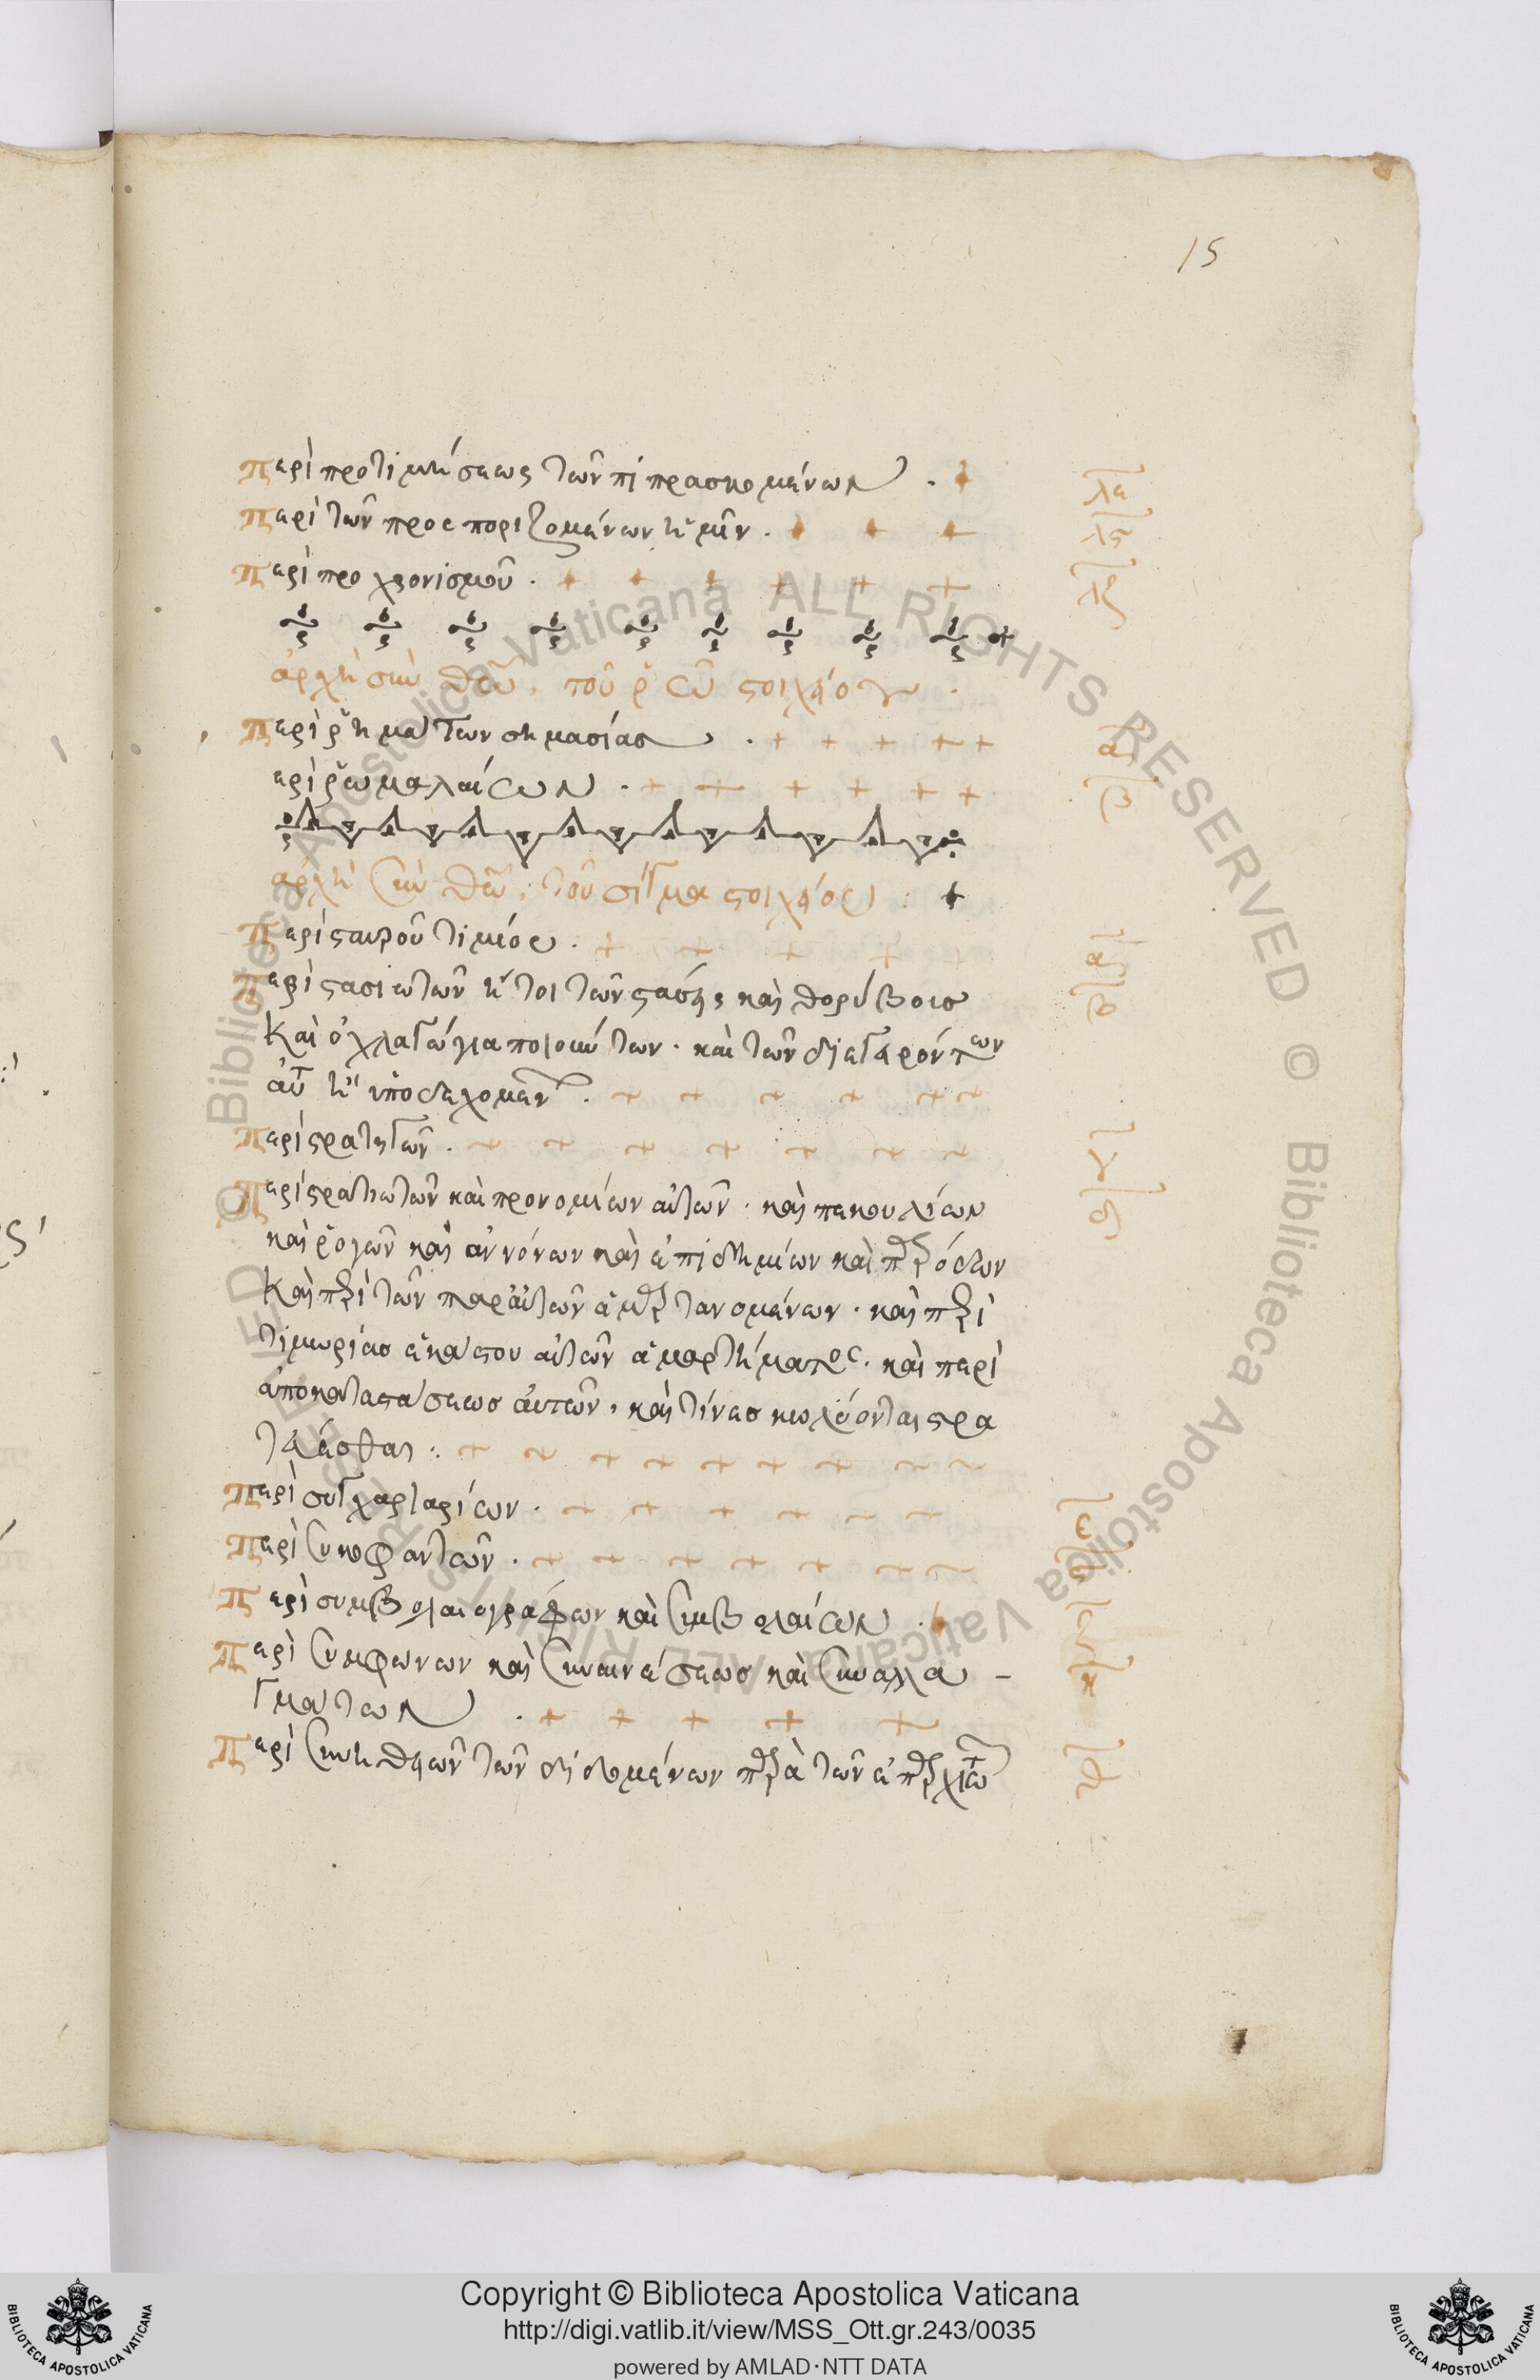 15
Περὶ προτιμήσεως τῶν πιπρασκομένων . λε
Περὶ τῶν προσποριζομένων ἡμῖν . λϛ
Περὶ προχρονισμοῦ . λζ
ἀρχὴ σὺν θεῶ, τοῦ ρ στοιχείου .
Περὶ ῥημάτων σημασίας . α
ερὶ ῥωμαλαίων . β
ἀρχὴ σὺν θεῶ, τοῦ σίγμα στοιχείου :
Περὶ σταυροῦ τιμίου . α
Περὶ στασιωτῶν ἤτοι τῶν στάσεις καὶ θορύβους β
καὶ ὀχλαγώγια ποιούντων . καὶ τῶν διεγειρόντων
αὐτ ἢ ὑποδεχομεν .
Περὶ στρατηγῶν . γ
Περὶ στρατιωτῶν καὶ προνομίων αὐτῶν . καὶ πεκουλίων δ
καὶ ῥογῶν καὶ ἀννόνων καὶ ἐπιδημίων καὶ παρόδων
καὶ περὶ τῶν παρ' αὐτῶν ἁμαρτανομένων . καὶ περὶ
τιμωρίας ἑκάστου αὐτῶν ἁμαρτήματος . καὶ περὶ
ἀποκαταστάσεως αὐτῶν, καὶ τίνες κωλύονται στρα
τεύεσθαι :
Περὶ συγχαρτιαρίων . ε
Περὶ συκοφαντῶν . ϛ
Περὶ συμβολαιογράφων καὶ συμβολαίων . ζ
Περὶ συμφώνων καὶ συναινέσεως καὶ συναλλα - η
γμάτων .
Περὶ συνηθειῶν τῶν διδομένων παρὰ τῶν ἐπαρχιωτῶ θ
© Biblioteca Apostolica Vaticana ALL RIGHTS RESERVED © Biblioteca Apostolica Vaticana ALL RIGHTS RESERVED
Copyright © Biblioteca Apostolica Vaticana
http://digi.vatlib.it/view/MSS_Ott.gr.243/0035
powered by AMLAD·NTT DATA
BIBLIOTECA APOSTOLICA VATICANA
BIBLIOTECA APOSTOLICA VATICANA